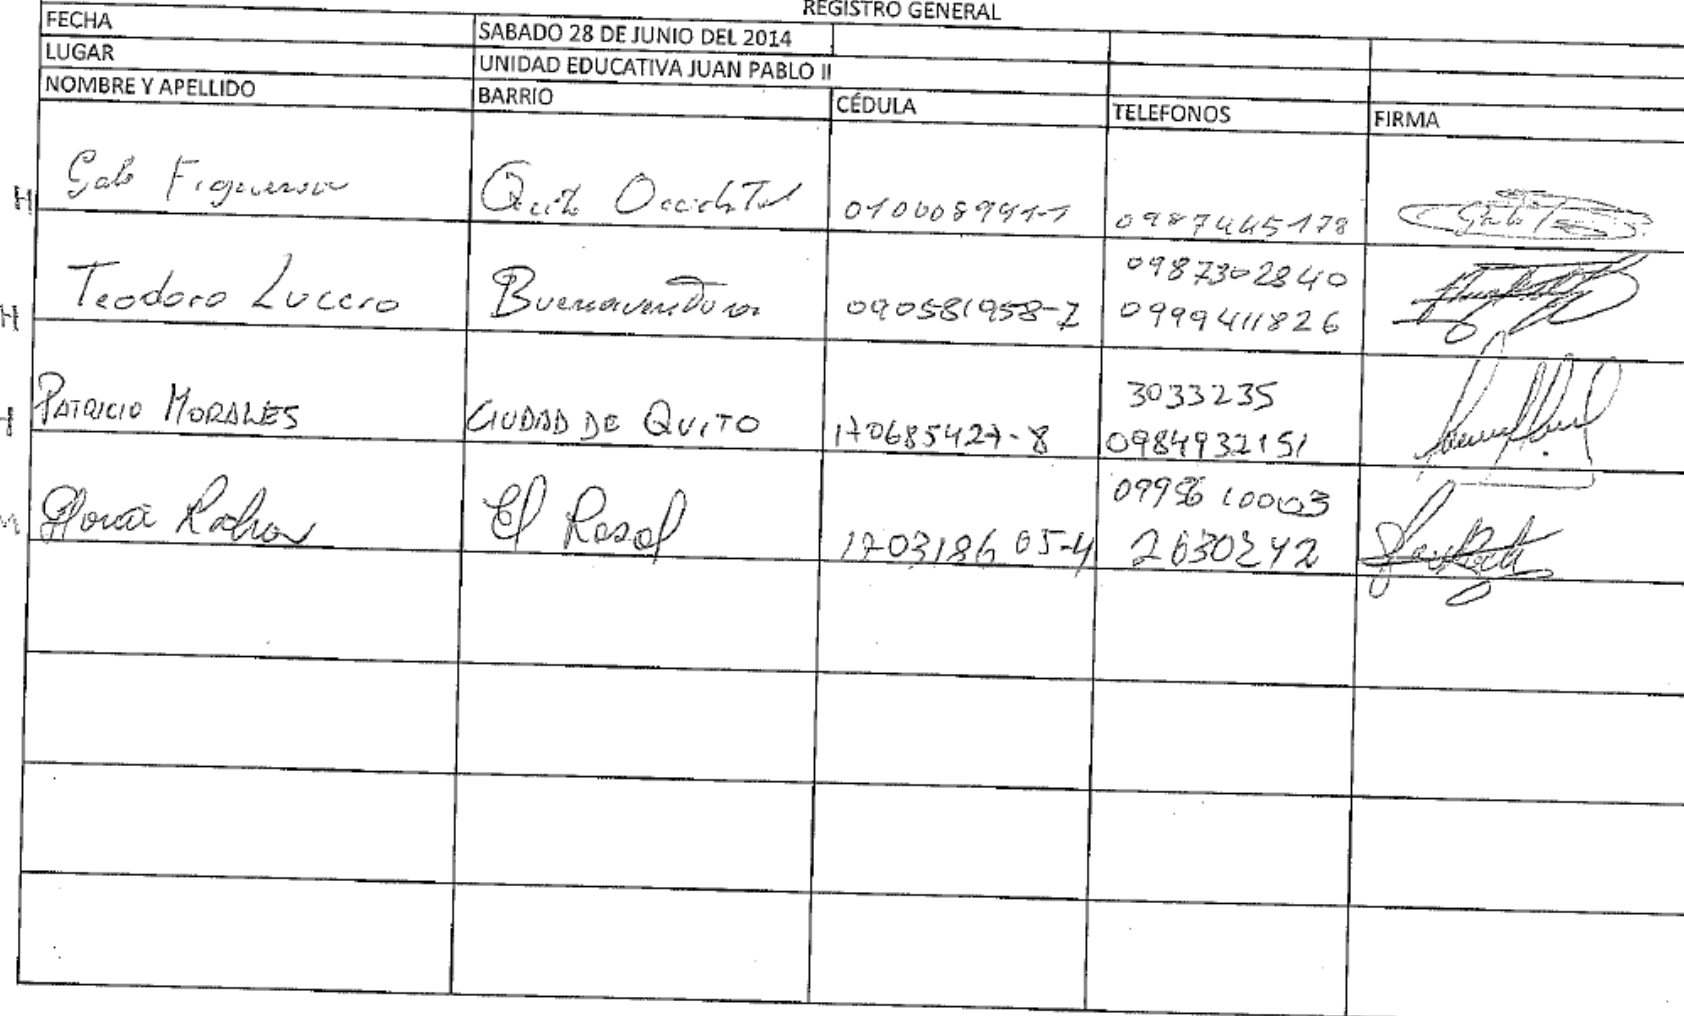 REGISTRO GENERAL
FECHA SABADO 28 DE JUNIO DEL 2014
LUGAR UNIDAD EDUCATIVA JUAN PABLO II
NOMBRE Y APELLIDO BARRIO CÉDULA TELEFONOS FIRMA
H Galo Figueroa Quito Occidental 010008991-1 0987445178
0987302840
H Teodoro Lucero Buenaventura 090581958-7 0999411826
3033235
H PATRICIO MORALES CIUDAD DE QUITO 170685427-8 0984932151
0995610003
M El Rosal 170318605-4 2630242